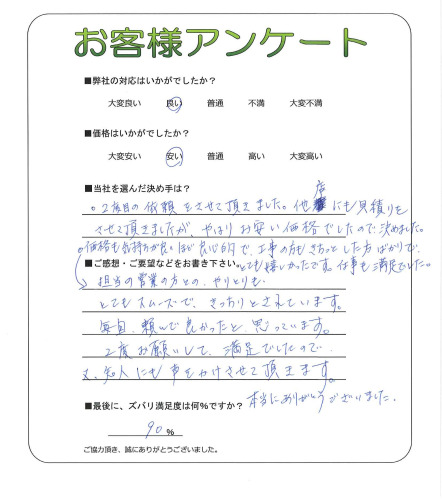 お客様アンケート
■弊社の対応はいかがでしたか？
大変良い 良い 普通 不満 大変不満
■価格はいかがでしたか？
大変安い 安い 普通 高い 大変高い
■当社を選んだ決め手は？
。2度目の依頼をさせて頂きました。他店にも見積りも
させて頂きましたが、やはりお安い価格でしたので決めました。
。価格も気持ちが良いほど良心的で、工事の方もきちっとした方ばかりで、
■ご感想・ご要望などをお書き下さい。
とても嬉しかったです。仕事も満足でした。
担当の営業の方との、やりとりも、
とてもスムーズで、きっちりとされています。
毎回、頼んで良かったと、思っています。
2度お願いして、満足でしたので
又、知人にも声をかけさせて頂きます。
本当にありがとうございました。
■最後に、ズバリ満足度は何％ですか？
90 %
ご協力頂き、誠にありがとうございました。